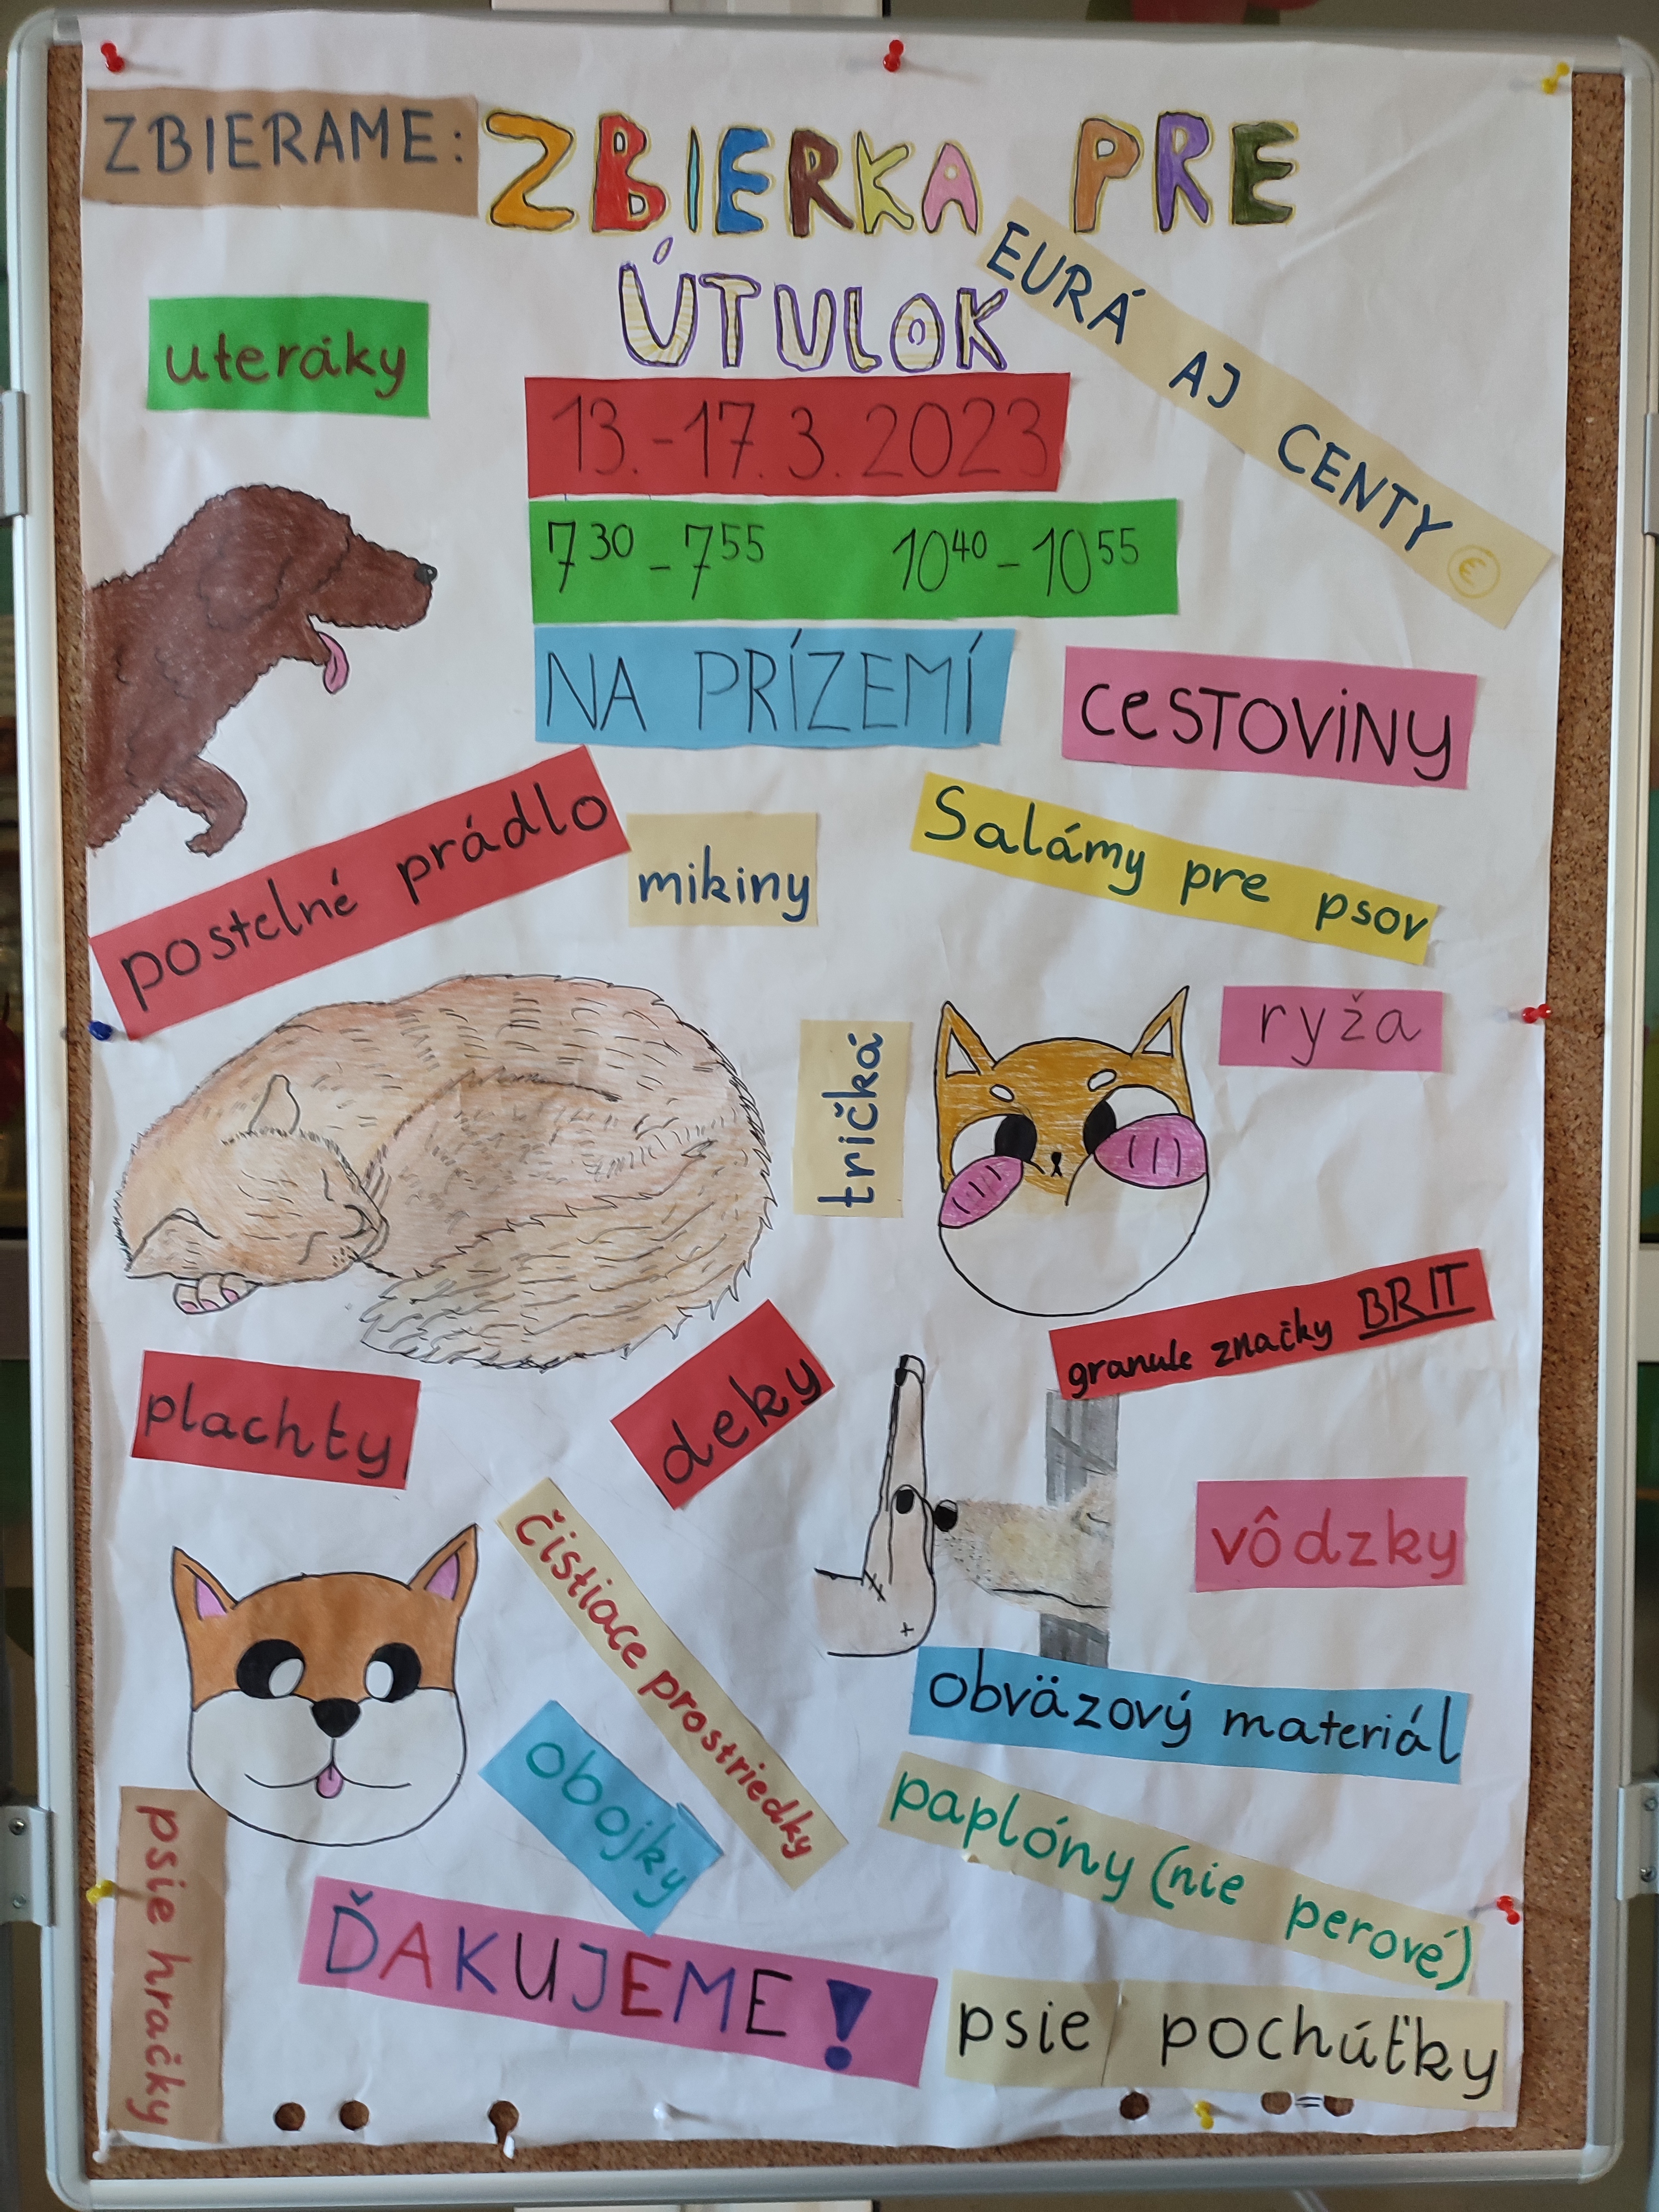 ZBIERAME:
ZBIERKA PRE
ÚTULOK
EURÁ AJ CENTY €
uteráky
13.-17.3.2023
7³⁰-7⁵⁵ 10⁴⁰-10⁵⁵
NA PRÍZEMÍ
cestoviny
postelné prádlo
mikiny
Salámy pre psov
tričká
ryža
granule značky BRIT
plachty
deky
vôdzky
čistiace prostriedky
obväzový materiál
obojky
paplóny (nie perové)
psie hračky
ĎAKUJEME!
psie pochúťky